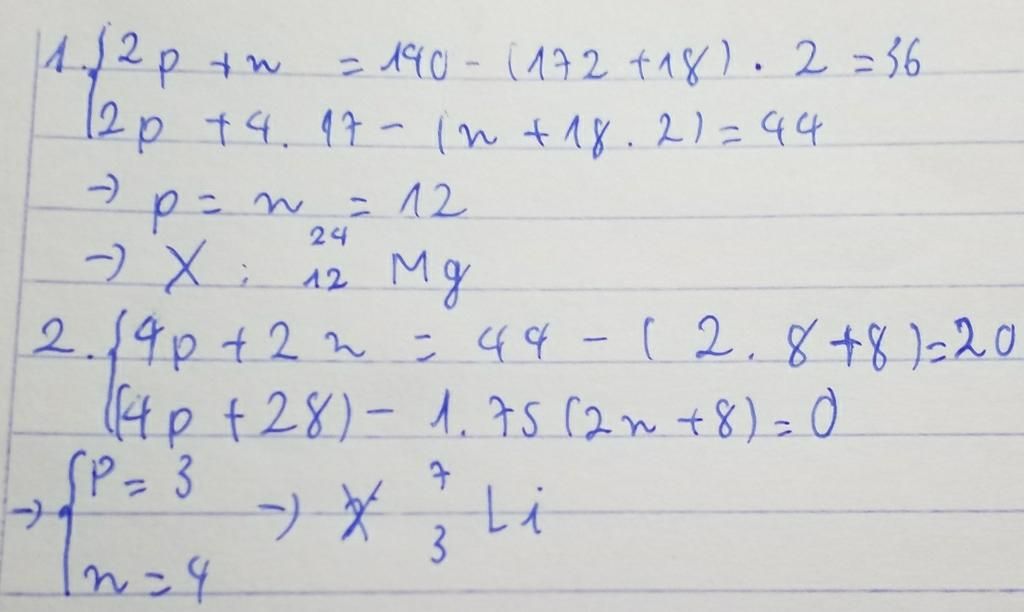 1. { 2p + n = 190 - (172 + 18) . 2 = 36
2p + 4. 17 - (n + 18 . 2) = 44
-> p = n = 12
-> X : ²⁴₁₂ Mg
2. { 4p + 2n = 44 - ( 2. 8 + 8) = 20
(4p + 28) - 1.75 (2n + 8) = 0
-> { P = 3 -> X ⁷₃ Li
n = 4